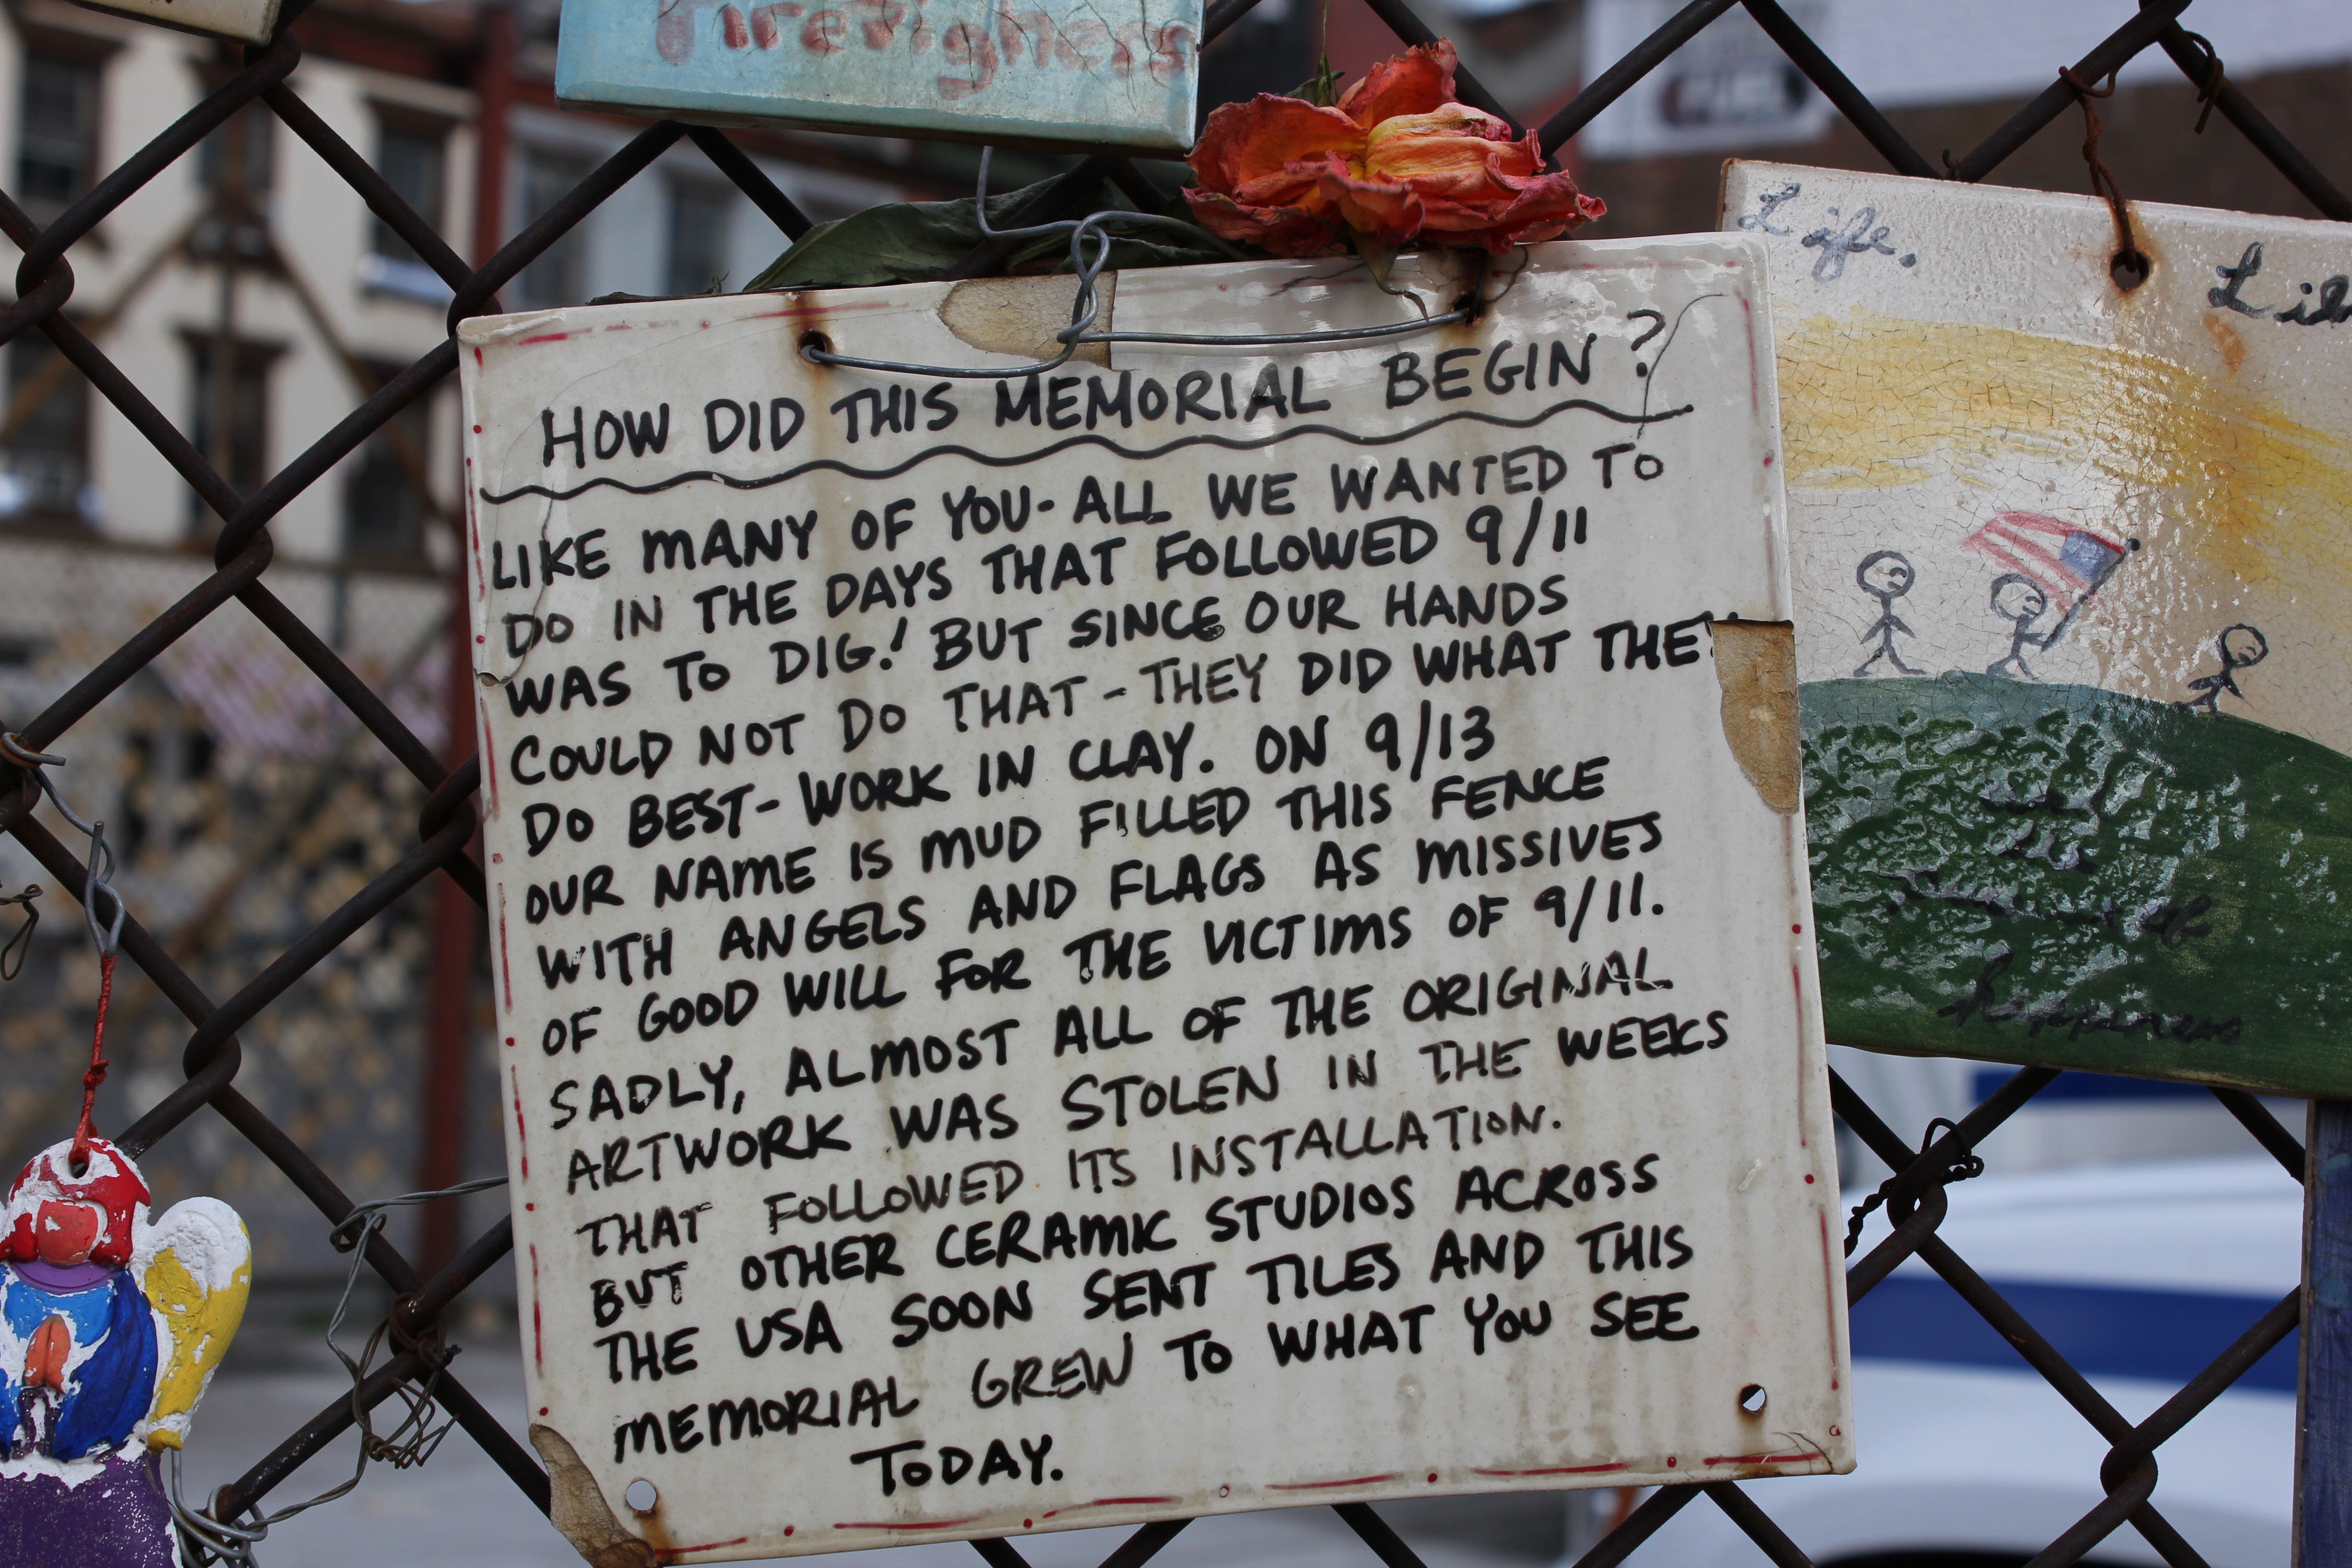 Firefighters
Life.
HOW DID THIS MEMORIAL BEGIN?
LIKE MANY OF YOU- ALL WE WANTED TO
DO IN THE DAYS THAT FOLLOWED 9/11
WAS TO DIG! BUT SINCE OUR HANDS
COULD NOT DO THAT - THEY DID WHAT THEY
DO BEST- WORK IN CLAY. ON 9/13
OUR NAME IS MUD FILLED THIS FENCE
WITH ANGELS AND FLAGS AS MISSIVES
OF GOOD WILL FOR THE VICTIMS OF 9/11.
SADLY, ALMOST ALL OF THE ORIGINAL
ARTWORK WAS STOLEN IN THE WEEKS
THAT FOLLOWED ITS INSTALLATION.
BUT OTHER CERAMIC STUDIOS ACROSS
THE USA SOON SENT TILES AND THIS
MEMORIAL GREW TO WHAT YOU SEE
TODAY.